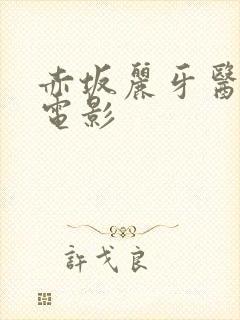 赤坂麗牙醫
電影
許戈良